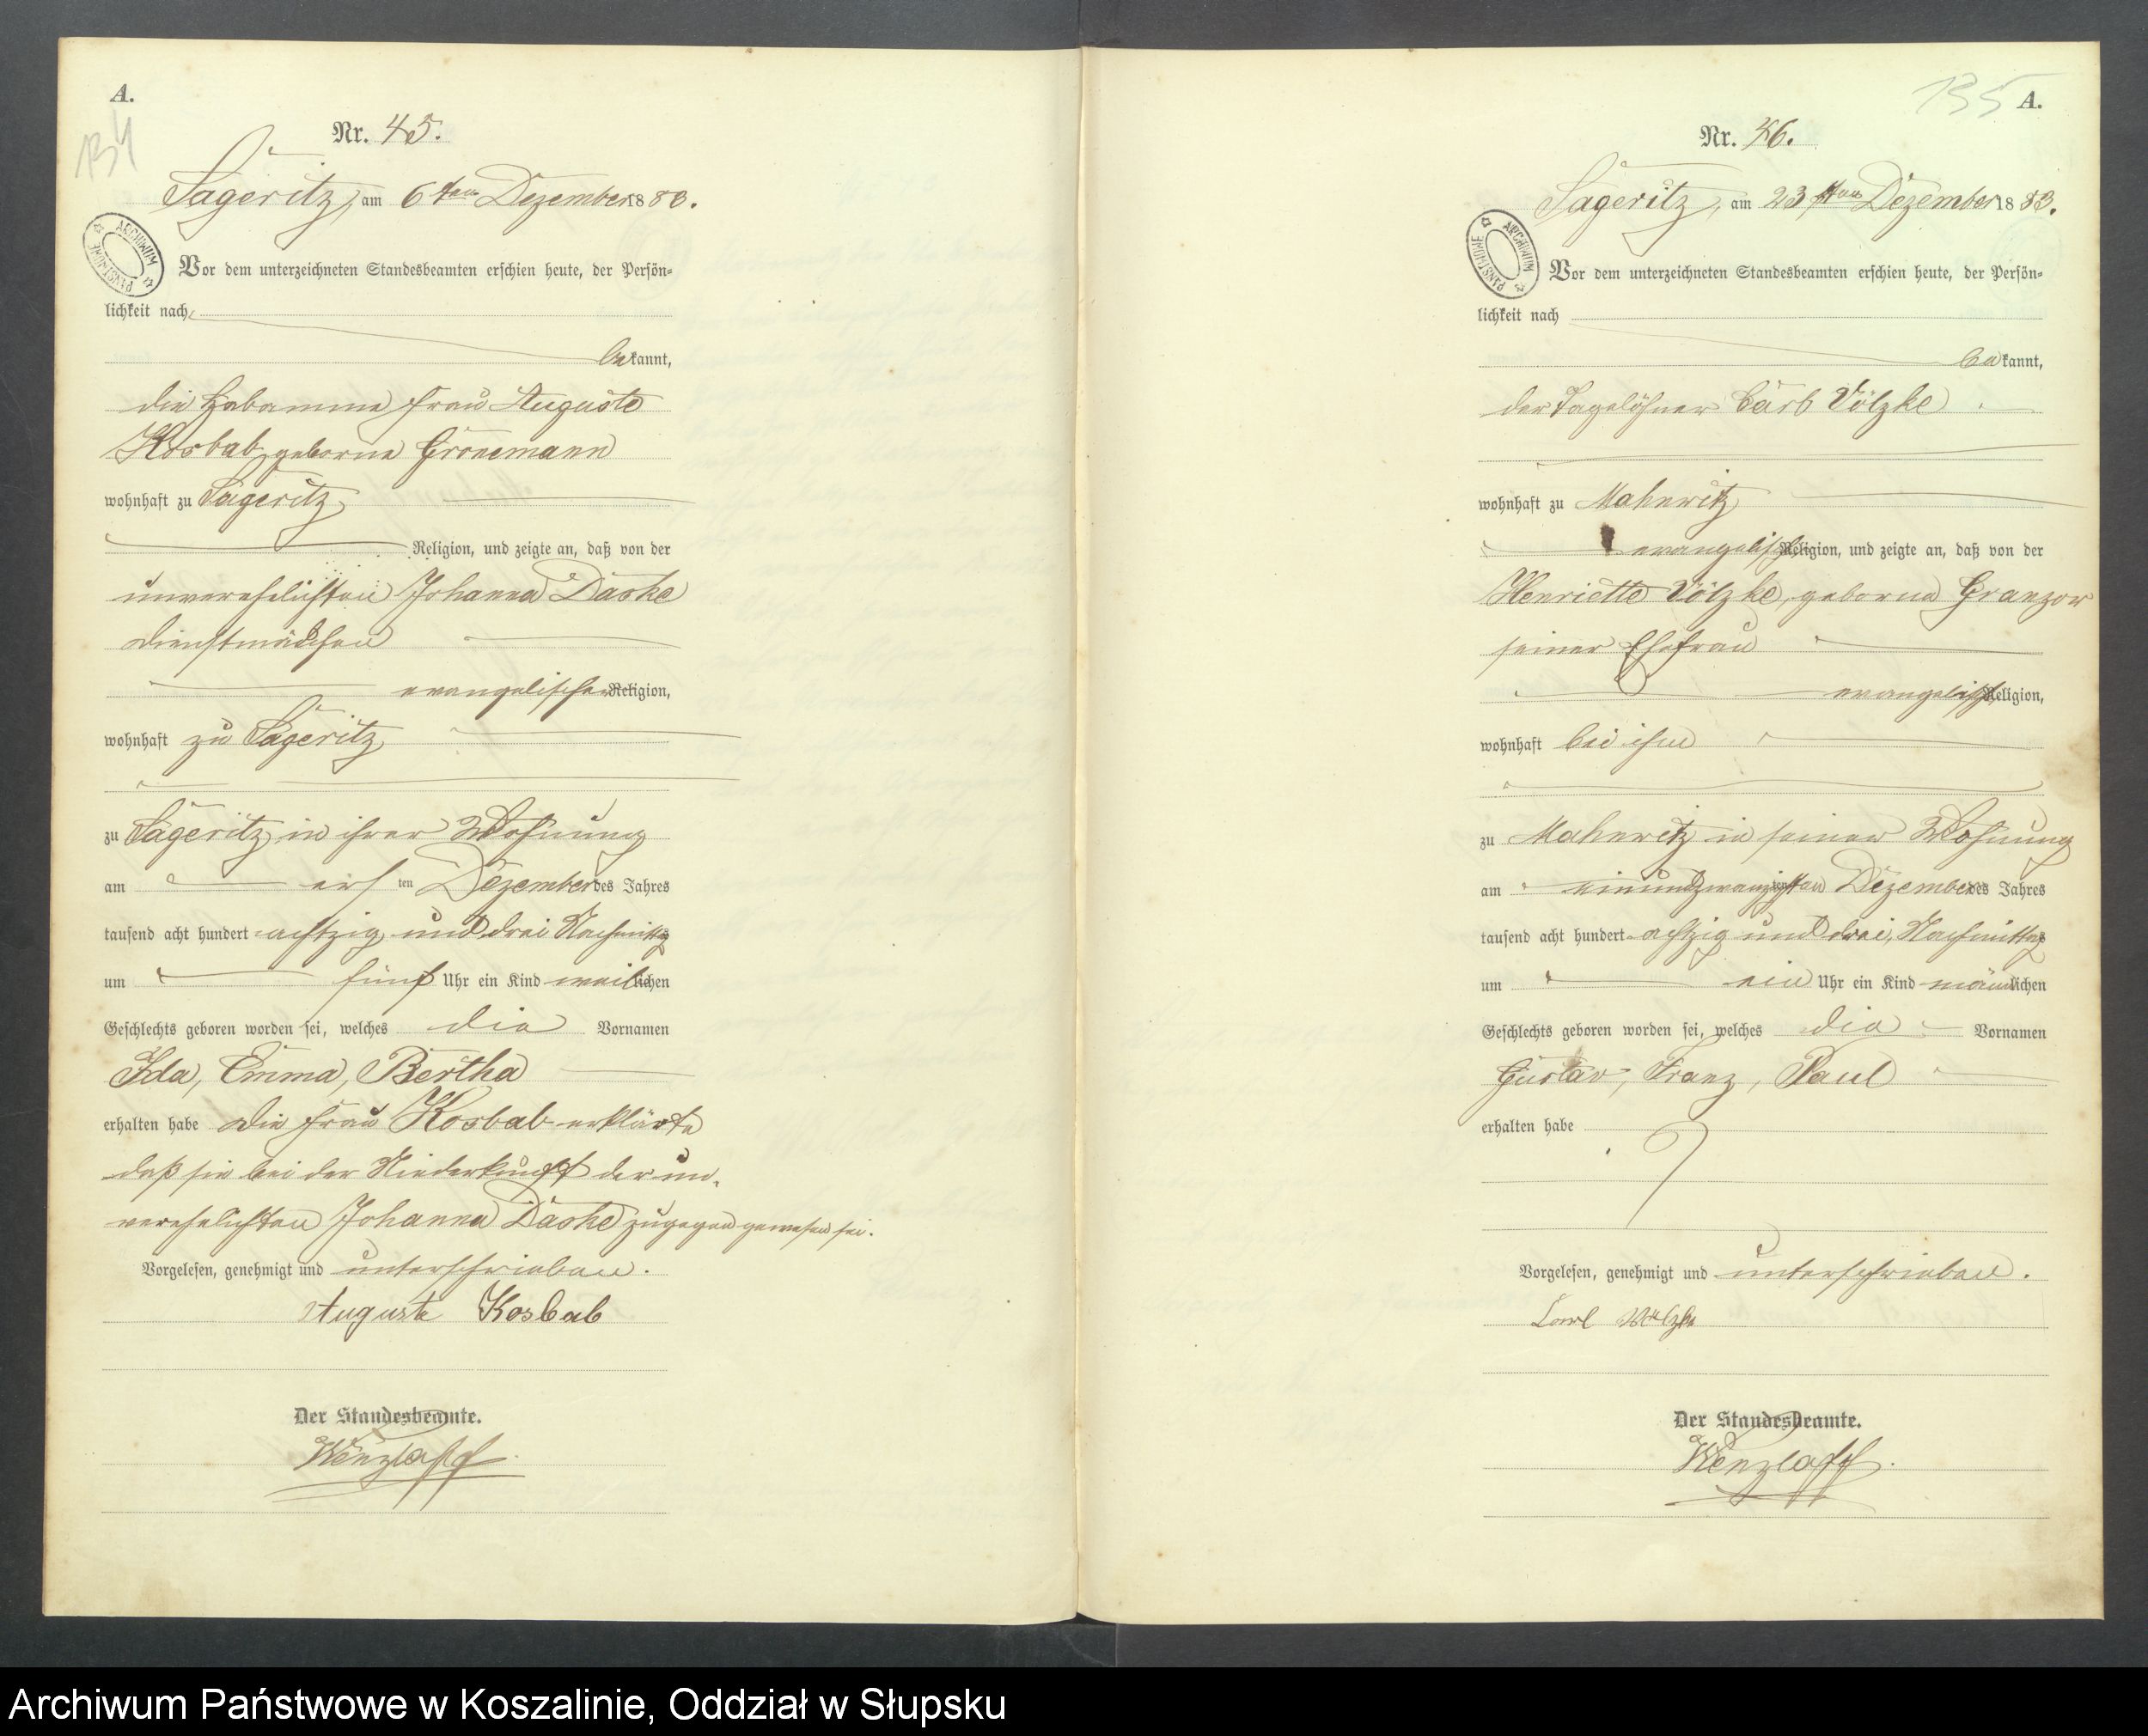 A.
134
Nr. 45.
Sageritz, am 6ten Dezember 1883.
ARCHIWUM PAŃSTWOWE
Vor dem unterzeichneten Standesbeamten erschien heute, der Persön-
lichkeit nach
bekannt,
die Hebamme Frau Auguste
Kosbab, geborne Gronemann
wohnhaft zu Sageritz
Religion, und zeigte an, daß von der
unverehelichten Johanna Daske
Dienstmädchen
evangelischer Religion,
wohnhaft zu Sageritz
zu Sageritz in ihrer Wohnung
am ersten Dezember des Jahres
tausend acht hundert achtzig und drei Nachmittags
um fünf Uhr ein Kind weiblichen
Geschlechts geboren worden sei, welches die Vornamen
Ida, Emma, Bertha
erhalten habe die Frau Kosbab erklärte
daß sie bei der Niederkunft der un-
verehelichten Johanna Daske zugegen gewesen sei.
Vorgelesen, genehmigt und unterschrieben.
Auguste Kosbab
Der Standesbeamte.
Wenzlaff
135 A.
Nr. 46.
Sageritz, am 23sten Dezember 1883.
ARCHIWUM PAŃSTWOWE
Vor dem unterzeichneten Standesbeamten erschien heute, der Persön-
lichkeit nach
bekannt,
der Tagelöhner Carl Völzke
wohnhaft zu Mahnwitz
evangelischer Religion, und zeigte an, daß von der
Henriette Völzke, geborne Granzow
seiner Ehefrau
evangelischer Religion,
wohnhaft bei ihm
zu Mahnwitz in seiner Wohnung
am einundzwanzigsten Dezember des Jahres
tausend acht hundert achtzig und drei, Nachmittags
um ein Uhr ein Kind männlichen
Geschlechts geboren worden sei, welches die Vornamen
Gustav, Franz, Paul
erhalten habe
Vorgelesen, genehmigt und unterschrieben.
Carl Völzke
Der Standesbeamte.
Wenzlaff.
Archiwum Państwowe w Koszalinie, Oddział w Słupsku